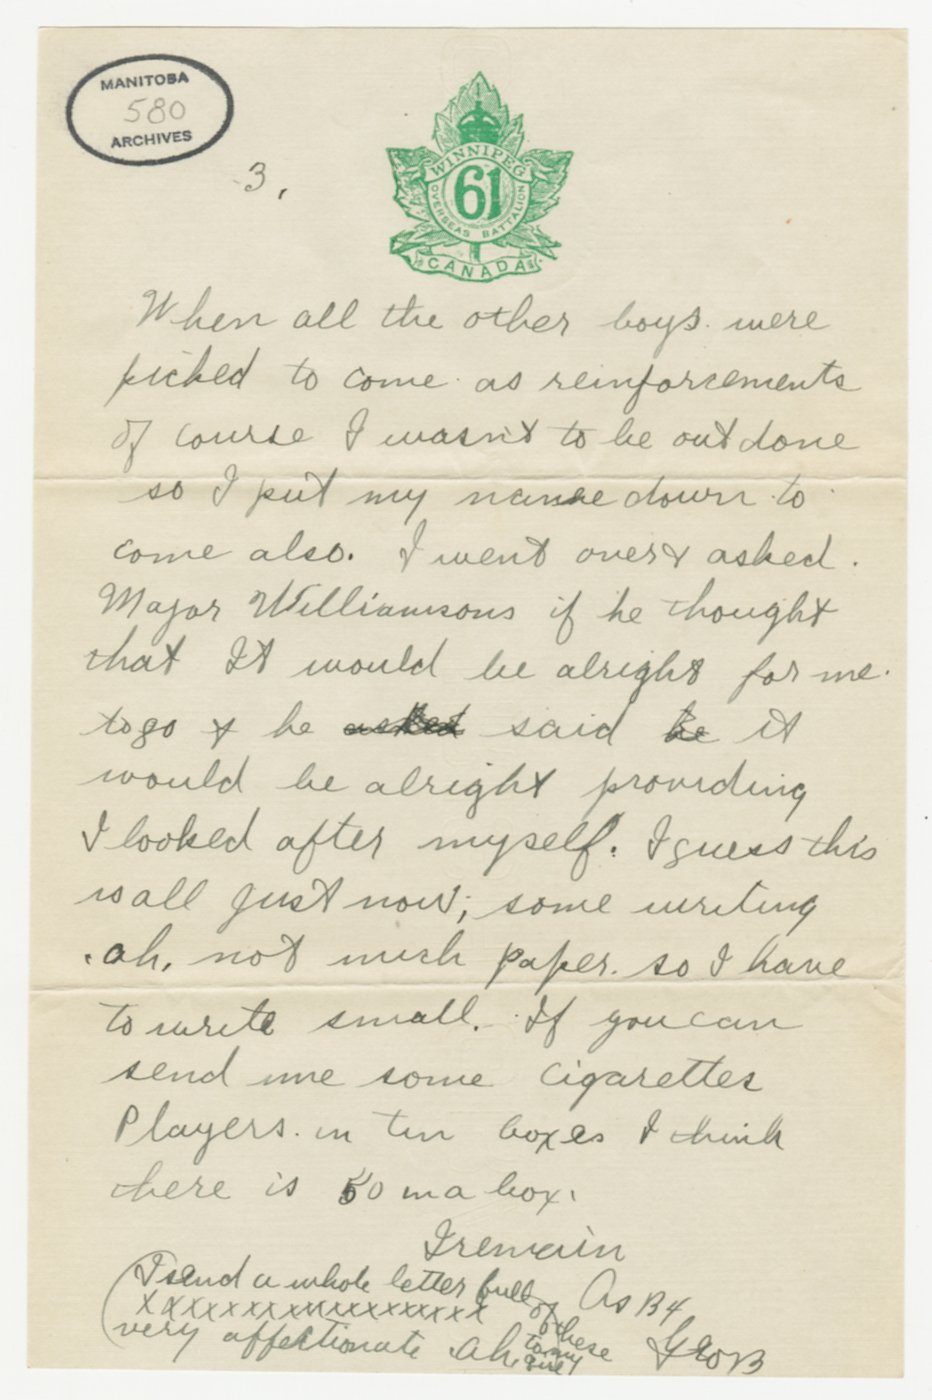 MANITOBA
580
ARCHIVES
3,
WINNIPEG
61
OVERSEAS BATTALION
CANADA
When all the other boys were
picked to come as reinforcements
of course I wasn't to be outdone
so I put my name down to
come also. I went over & asked
Major Williamsons if he thought
that It would be alright for me
to go & he asked said he it
would be alright providing
I looked after myself. I guess this
is all just now; some writing
ah, not much paper so I have
to write small. If you can
send me some cigarettes
Players in tin boxes I think
there is 50 in a box.
I remain
As B4
Geo B
(I send a whole letter full of these
xxxxxxxxxxxxxxxxxx to my girl
very affectionate ah.